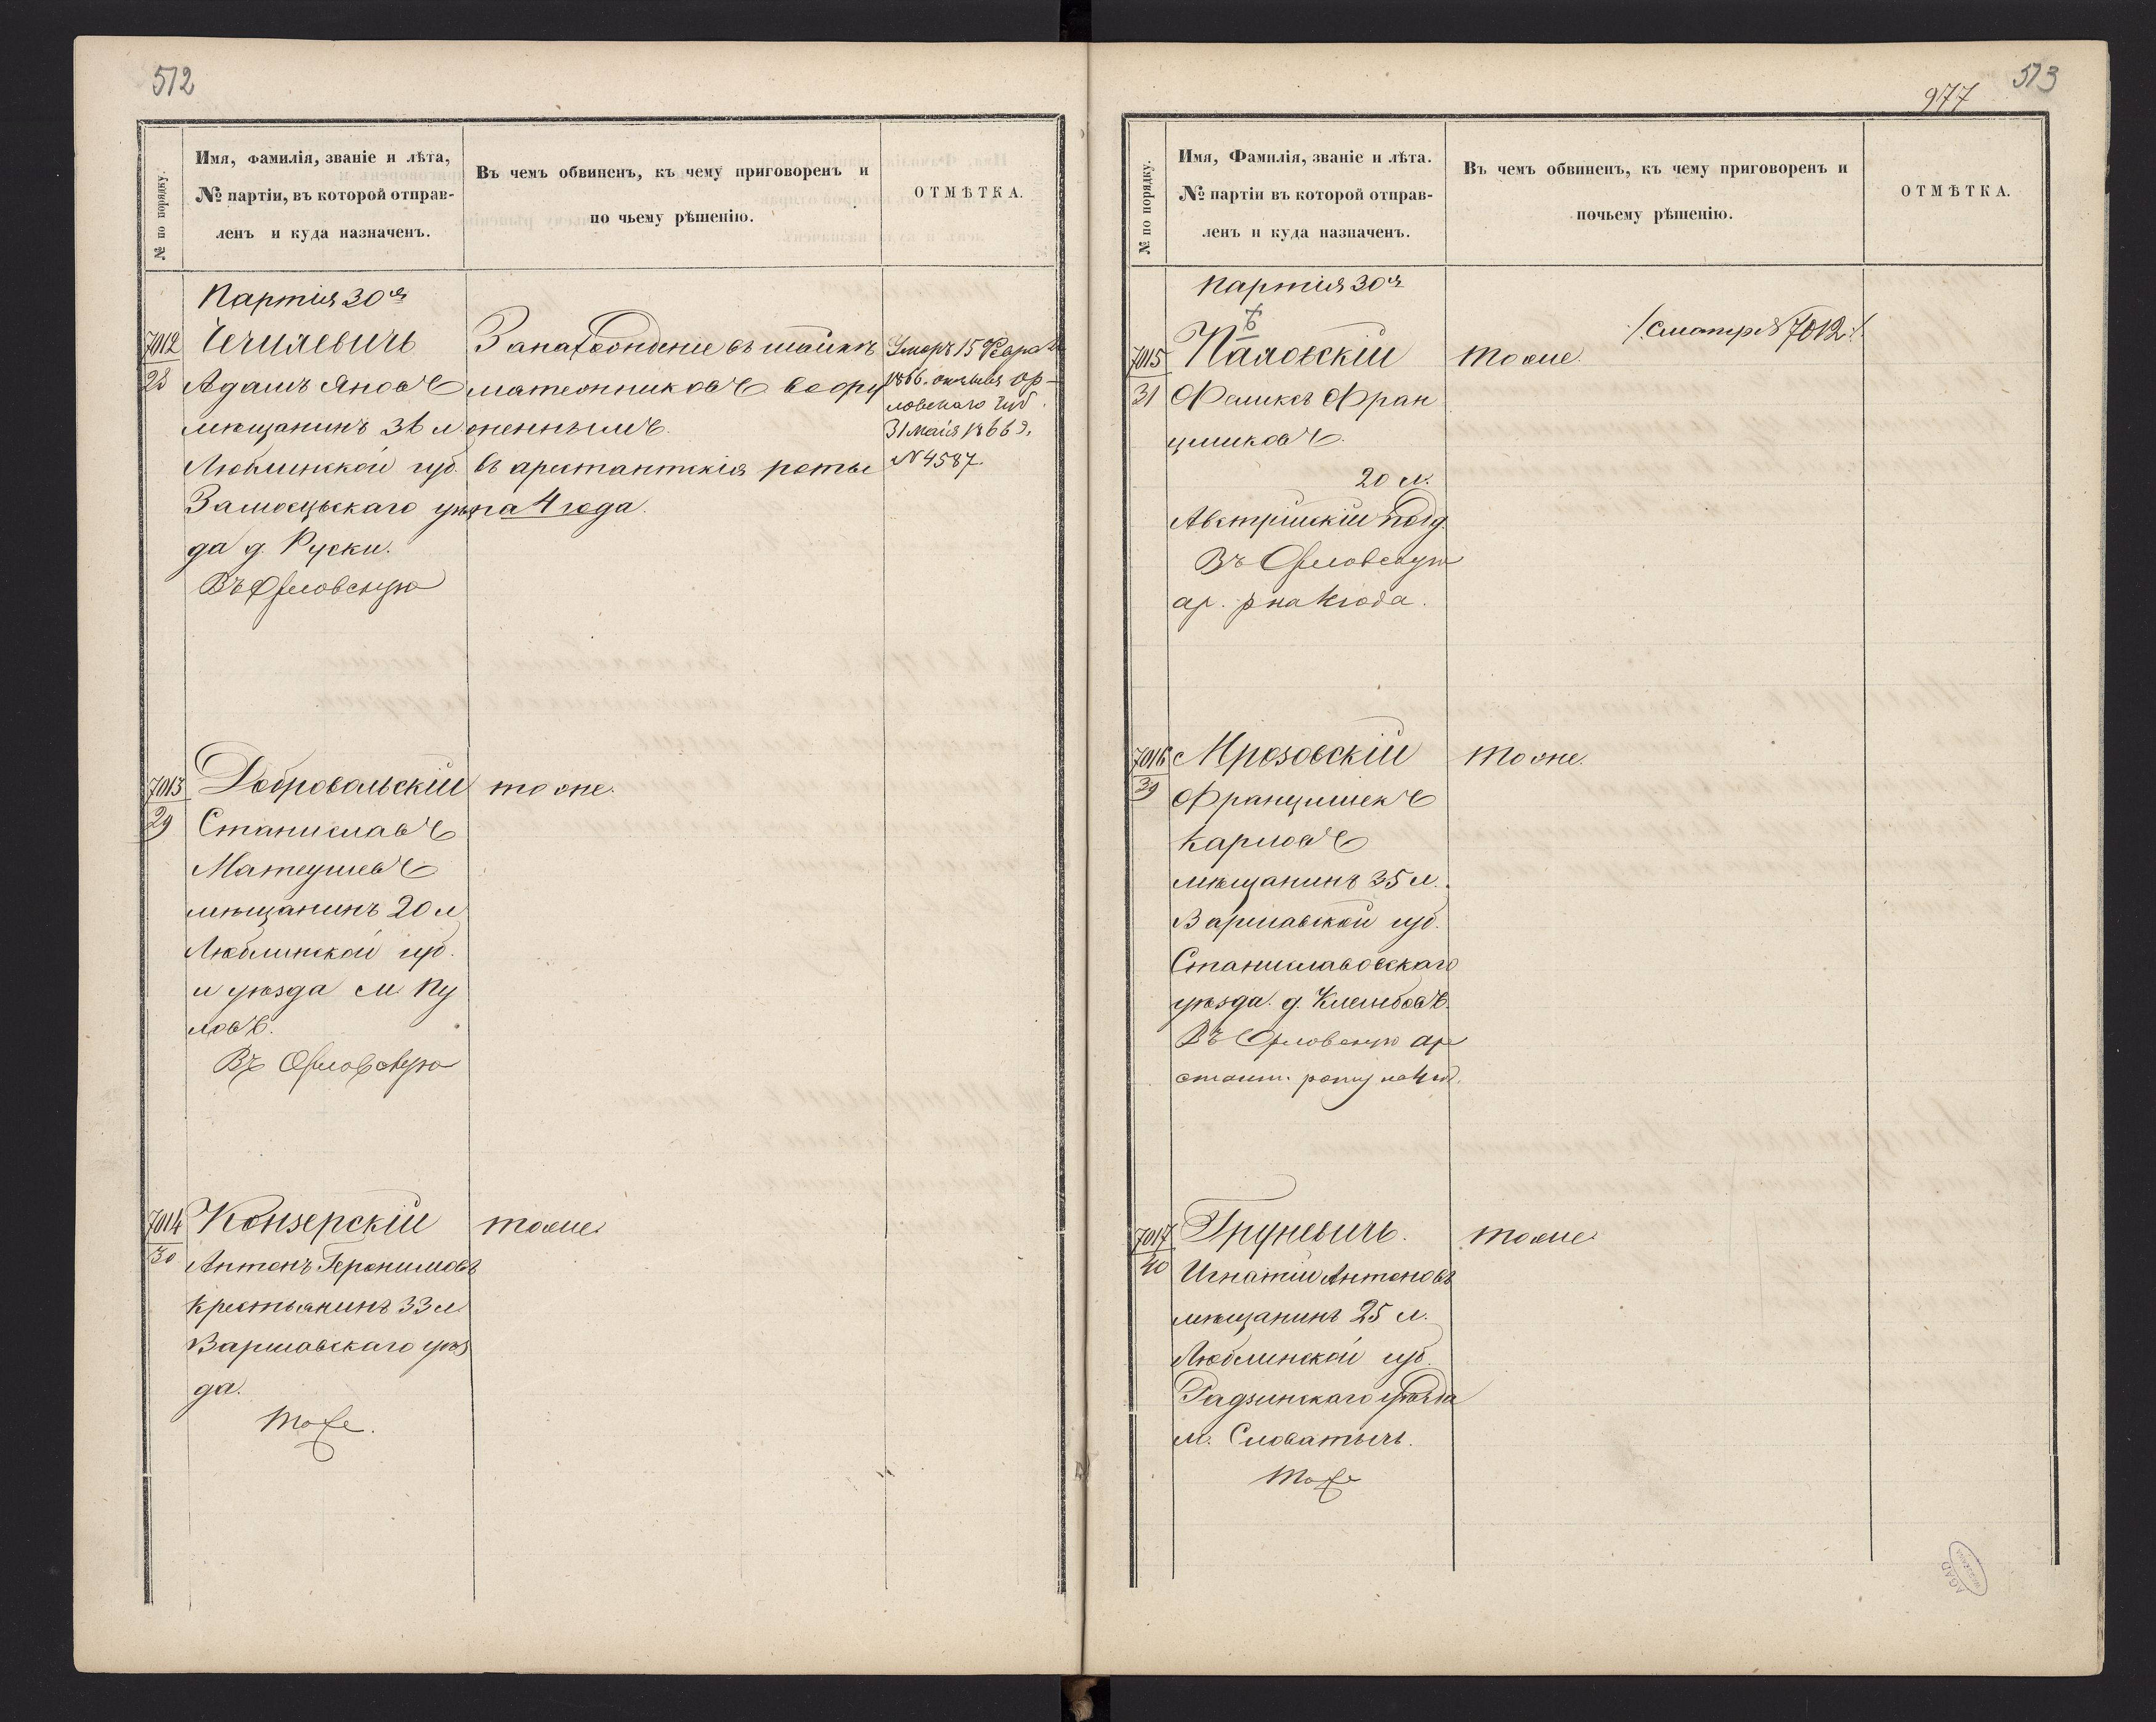 512
№ по порядку.
Имя, фамилія, званіе и лѣта,
№ партіи, въ которой отправ-
ленъ и куда назначенъ.
Въ чемъ обвиненъ, къ чему приговоренъ и
по чьему рѣшенію.
ОТМѢТКА.
Партія 30я
7012
28
Чечилевичъ
Адамъ Яновъ
мѣщанинъ 36 л
Люблинской губ.
Замосцьскаго уѣз
да д. Руски.
Въ Орловскую
За нахожденіе въ шайкѣ
мятежниковъ воору
женнымъ.
въ арестантскія роты
на 4 года.
Умеръ 15 Февра
1866. Ор-
ловскаго Губ.
31 Мая 1866 г.
№ 4587.
7013
29
Добровольскій
Станиславъ
Матеушевъ
мѣщанинъ 20 л
Люблинской губ.
и уѣзда м. Ку
ловъ.
Въ Орловскую
тоже.
7014
30
Конзерскій
Антонъ Геронимовъ
крестьянинъ 33 л.
Варшавскаго уѣз
да.
Тоже.
тоже.
513
977
№ по порядку.
Имя, Фамилія, званіе и лѣта.
№ партіи въ которой отправ-
ленъ и куда назначенъ.
Въ чемъ обвиненъ, къ чему приговоренъ и
почьему рѣшенію.
ОТМѢТКА.
Партія 30я
/:Смотр. № 7012:/
7015
31
Паловскій
Феликсъ Фран
цишковъ.
20 л.
Австрійскій подд.
Въ Орловскую
ар. р на 4 года.
тоже.
7016
39
Мрозовскій
Францишекъ
Карловъ
мѣщанинъ 35 л.
Варшавской губ.
Станиславовскаго
уѣзда. д. Клембовъ.
Въ Орловскую аре
стант. роту на 4 го.
тоже.
7017
40
Груневичъ.
Игнатій Антоновъ
мѣщанинъ 25 л.
Люблинской губ.
Радзинскаго уѣзда
м. Словатычъ.
Тоже
тоже
AGAD
WARSZAWA